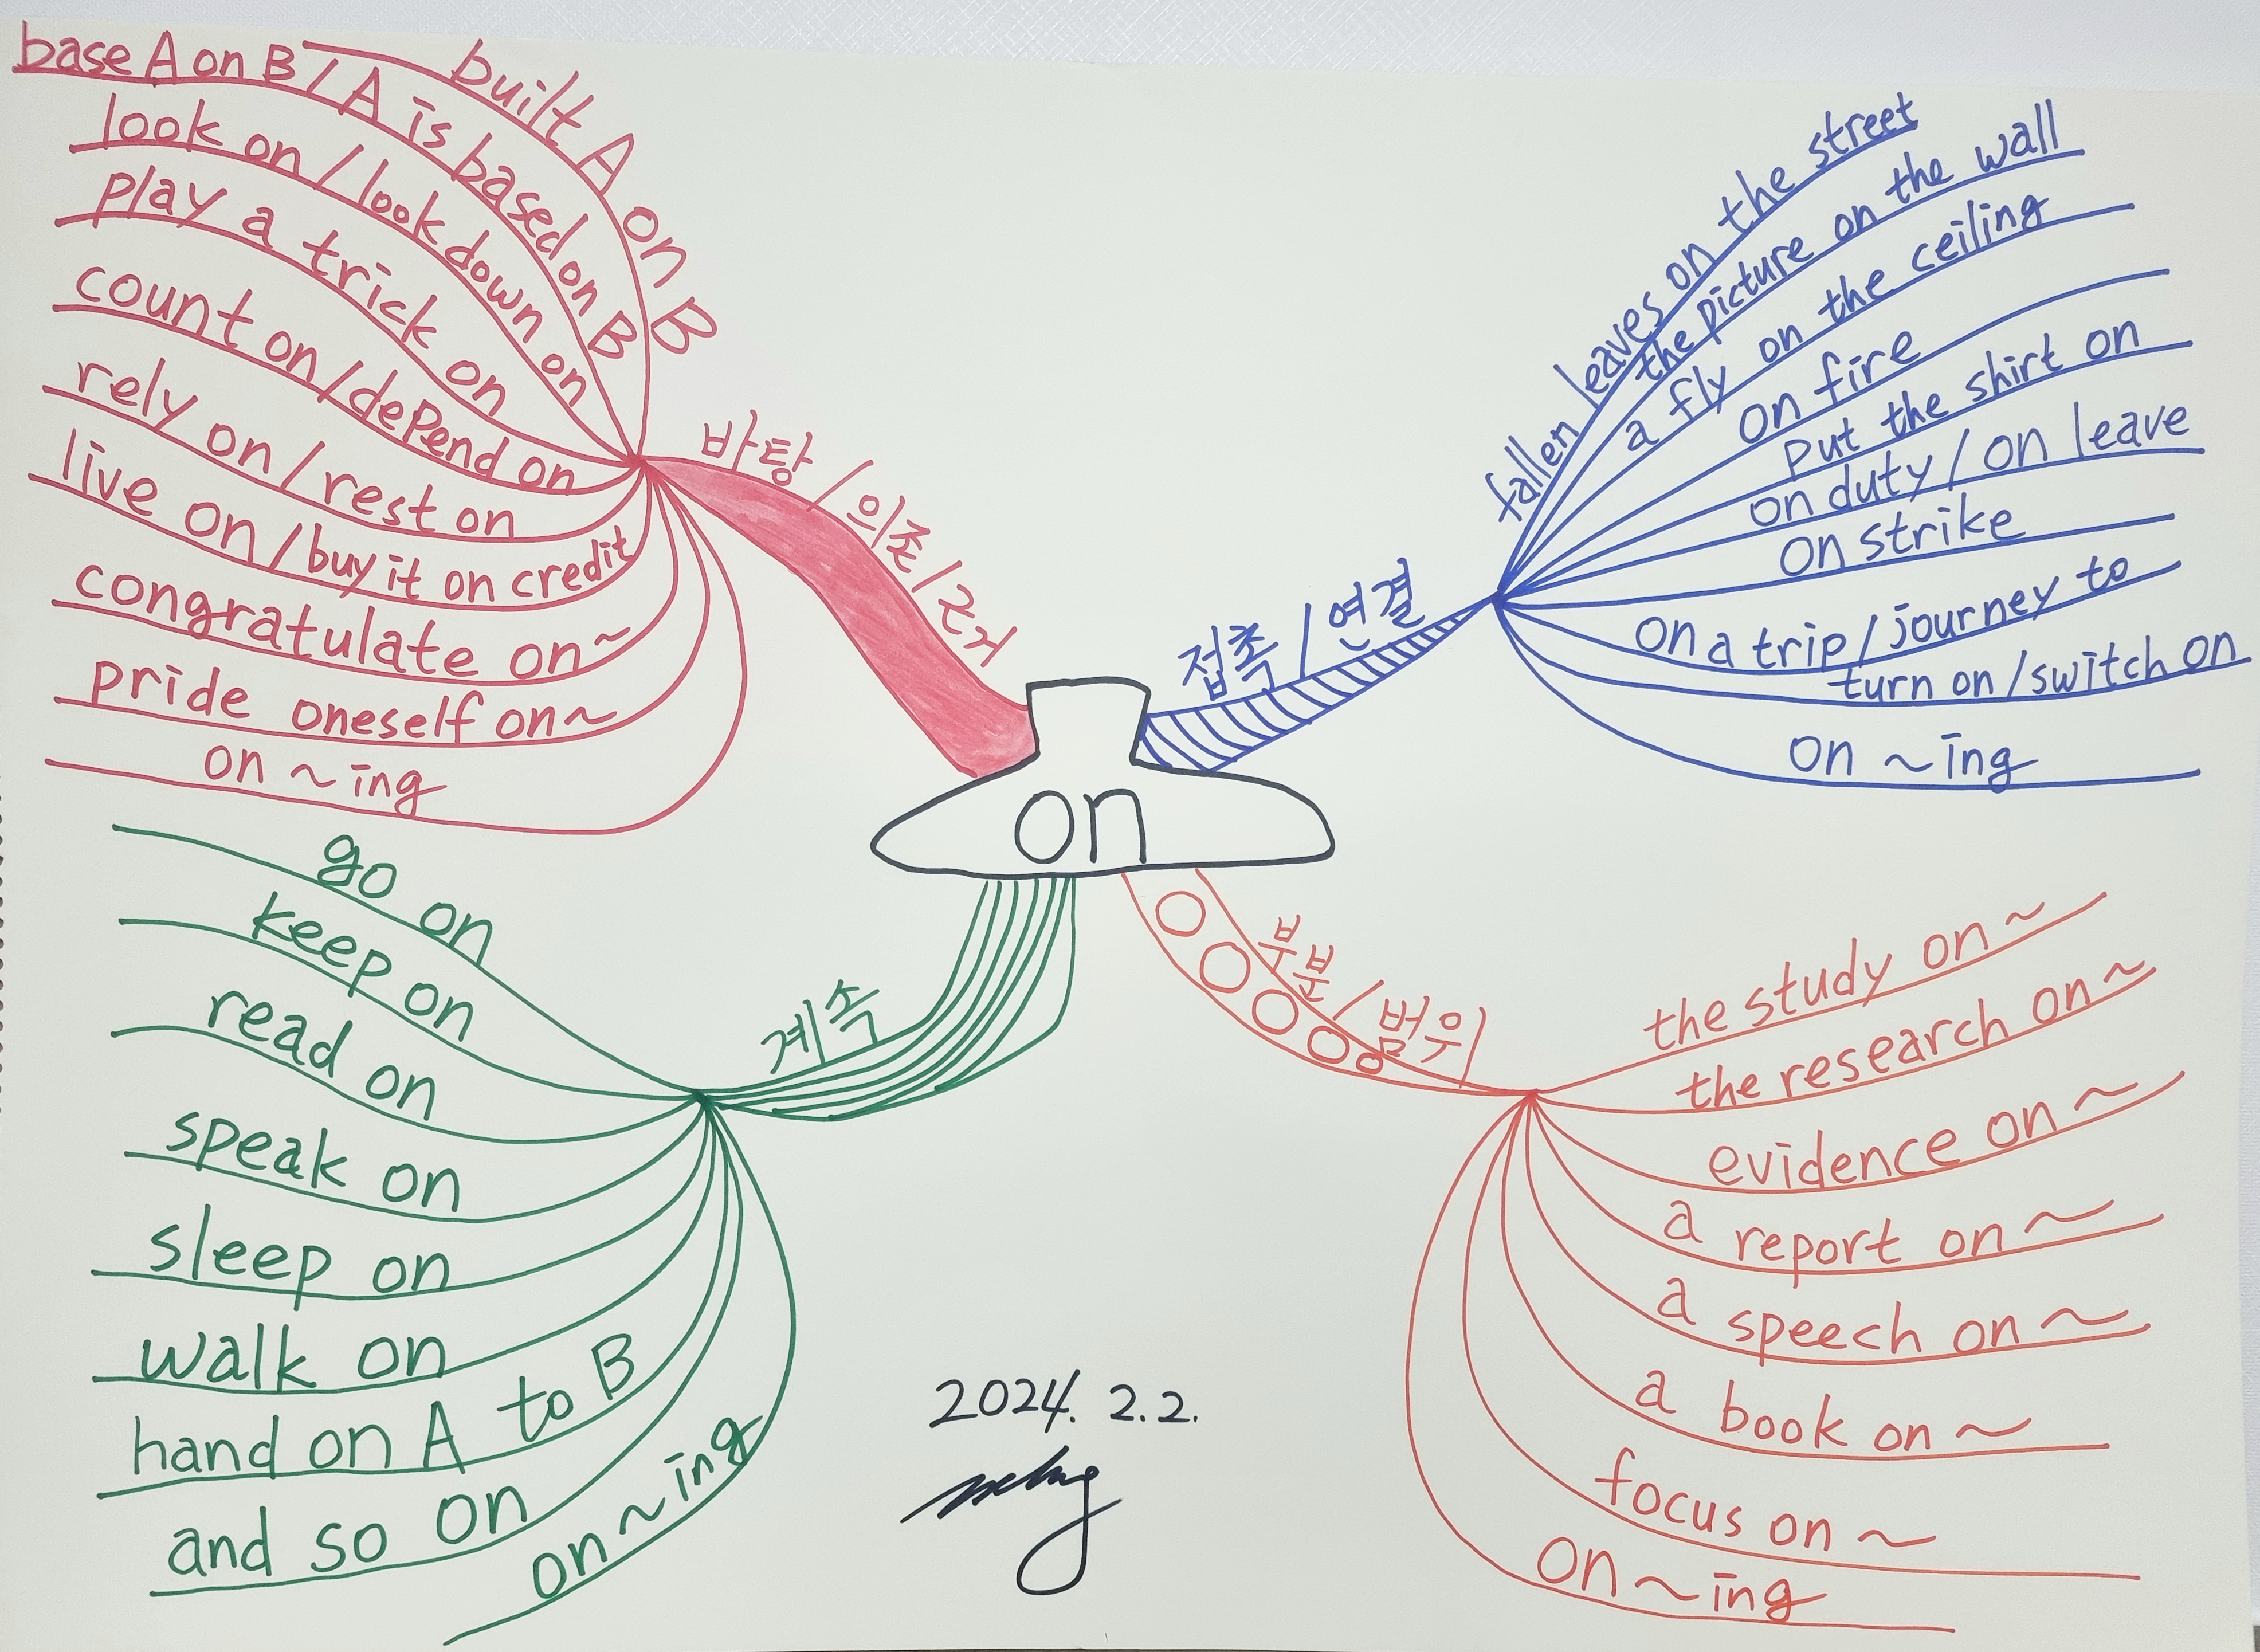 built A on B
base A on B / A is based on B
look on / look down on
play a trick on
count on / depend on
rely on / rest on
live on / buy it on credit
congratulate on ~
pride oneself on ~
on ~ ing
바탕 / 의존 / 근거
fallen leaves on the street
the picture on the wall
a fly on the ceiling
on fire
put the shirt on
on duty / on leave
on strike
on a trip / journey to
turn on / switch on
on ~ ing
접촉 / 연결
on
go on
keep on
read on
speak on
sleep on
walk on
hand on A to B
and so on
on ~ ing
계속
부분 / 범위
the study on ~
the research on ~
evidence on ~
a report on ~
a speech on ~
a book on ~
focus on ~
on ~ ing
2024. 2. 2.